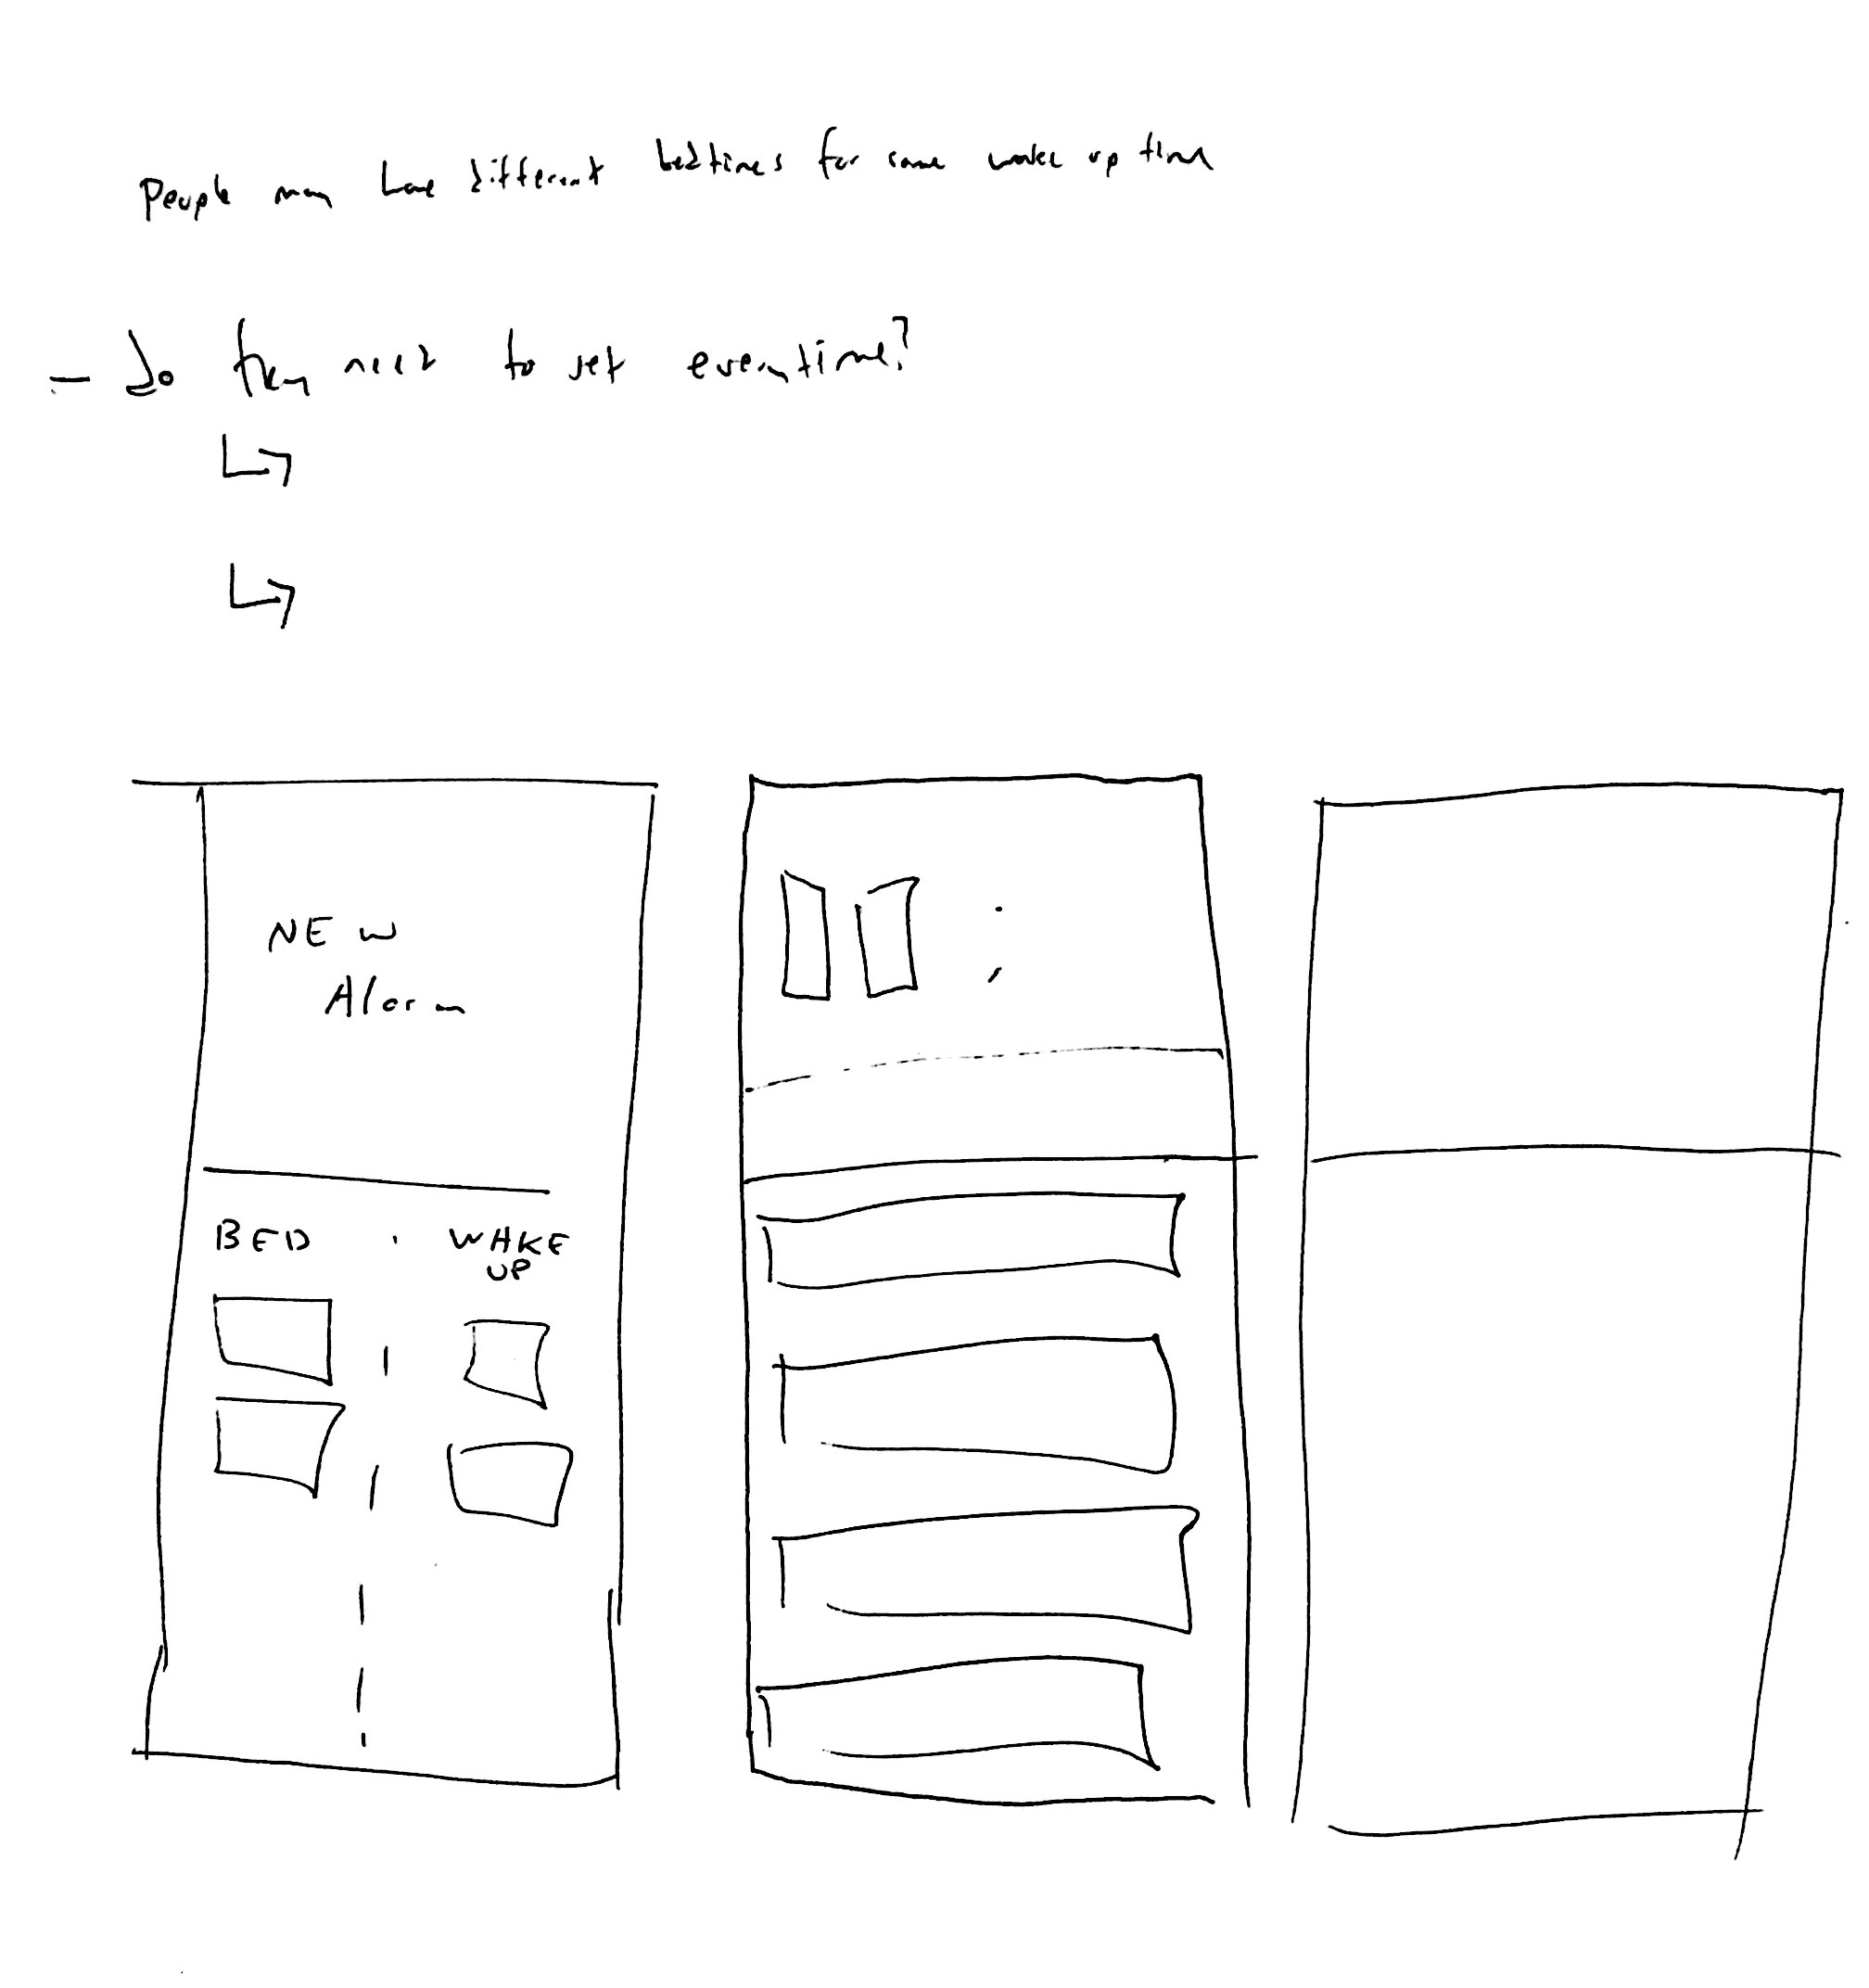 People may have different bedtimes for same wake up time
- Do they need to set everytime?
NEW
Alarm
BED
WAKE
UP